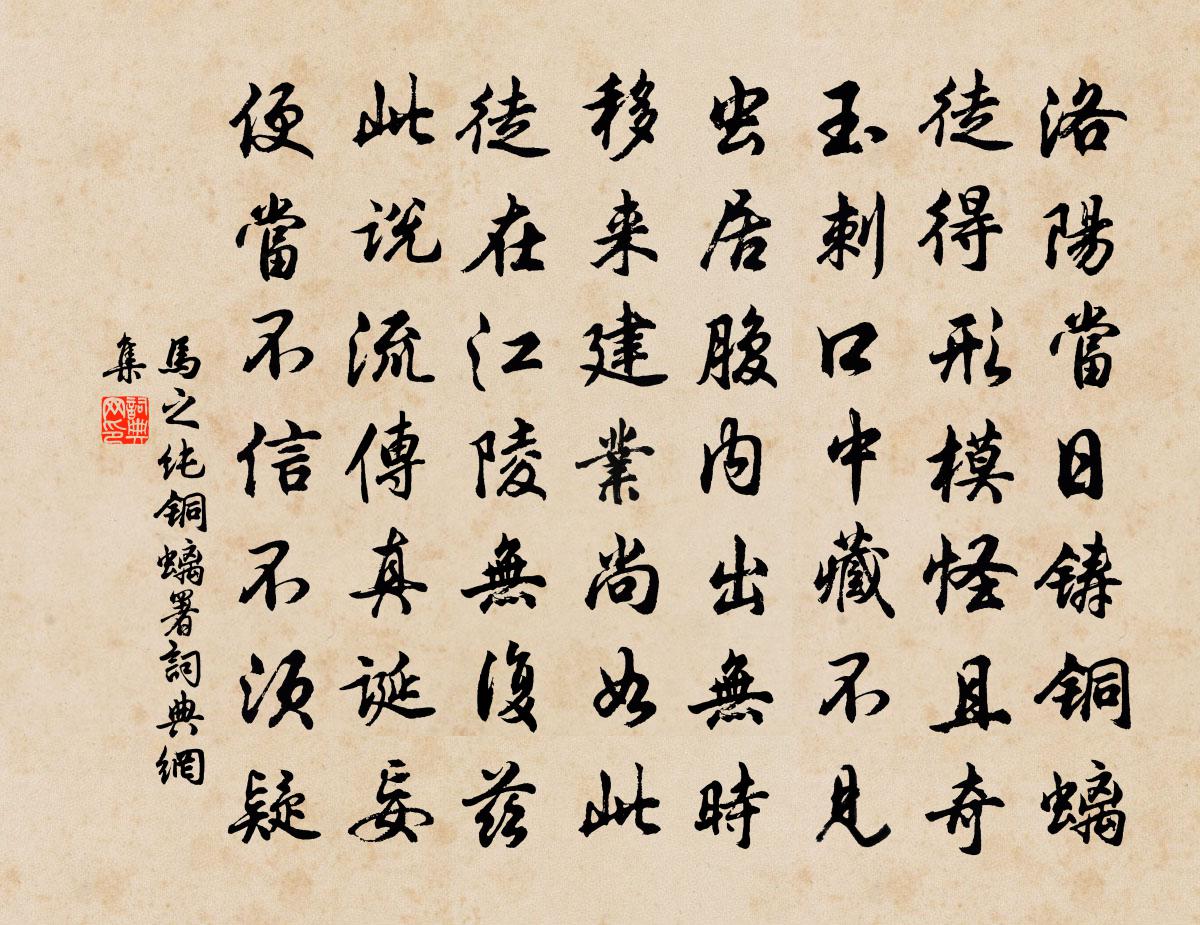 洛陽當日鑄銅螭
徒得形模怪且奇
玉刺口中藏不見
虫居腹内出無時
移来建業尚如此
徒在江陵無復茲
此説流傳真誕妄
便當不信不須疑
馬之纯銅螭署詞典網
集
詞典网印